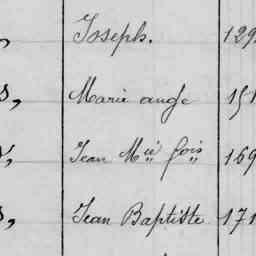 Joseph. 129
Marie ange 151
Jean Mie fois 169
Jean Baptiste 171